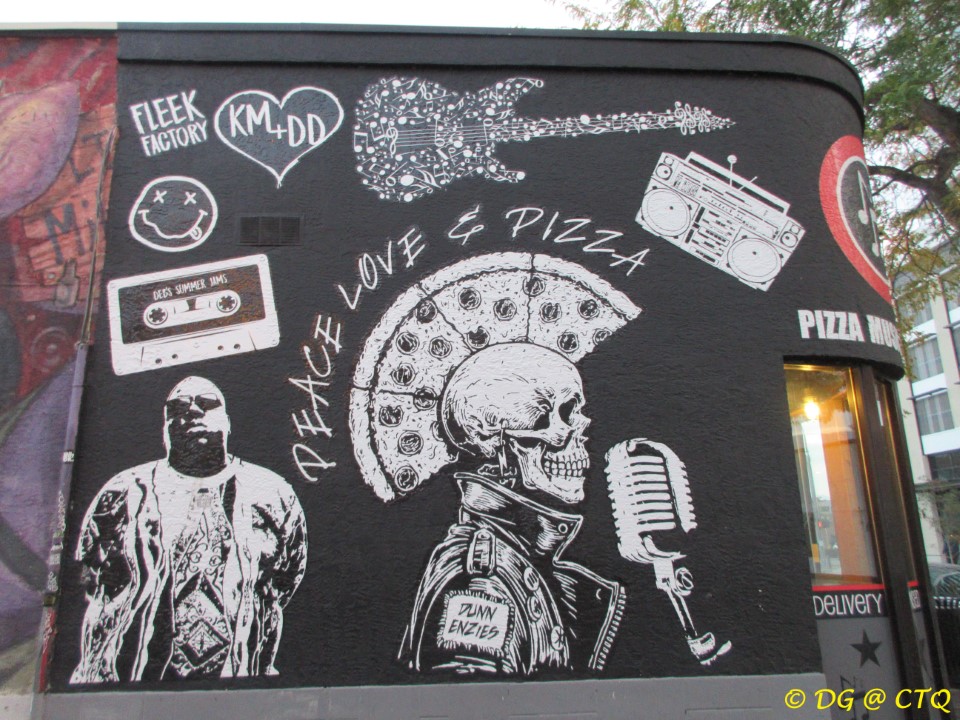 FLEEK
FACTORY
KM+DD
DEG'S SUMMER JAMS
PEACE LOVE & PIZZA
PIZZA MUS
DUNN
ENZIES
DELIVERY
© DG @ CTQ